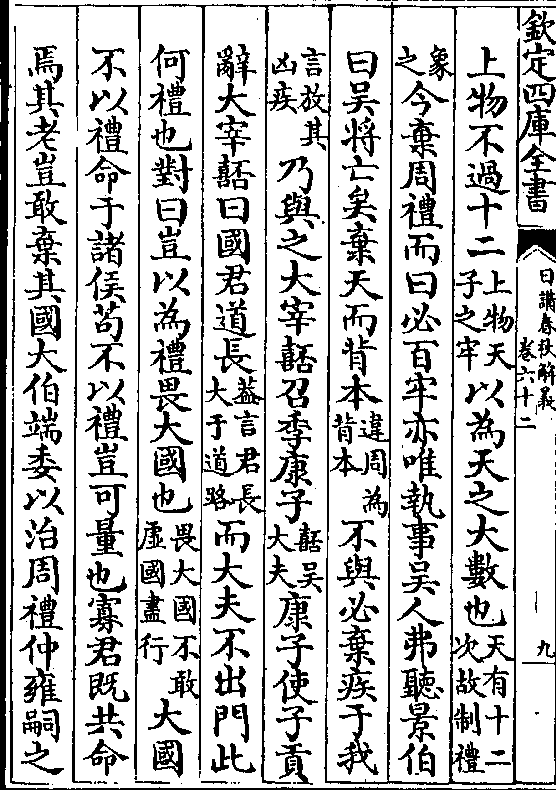 欽定四庫全書
日講春秋解義
卷六十二
九
上物不過十二上物天子之牢以為天之大數也天有十二次故制禮
象之今棄周禮而曰必百牢亦唯執事吳人弗聽景伯
曰吳將亡矣棄天而背本違周為背本不與必棄疾于我
言放其凶疾乃與之大宰嚭召季康子嚭吳大夫康子使子貢
辭大宰嚭曰國君道長蓋言君長大于道路而大夫不出門此
何禮也對曰豈以為禮畏大國也畏大國不敢虛國盡行大國
不以禮命于諸侯苟不以禮豈可量也寡君既共命
焉其老豈敢棄其國大伯端委以治周禮仲雍嗣之